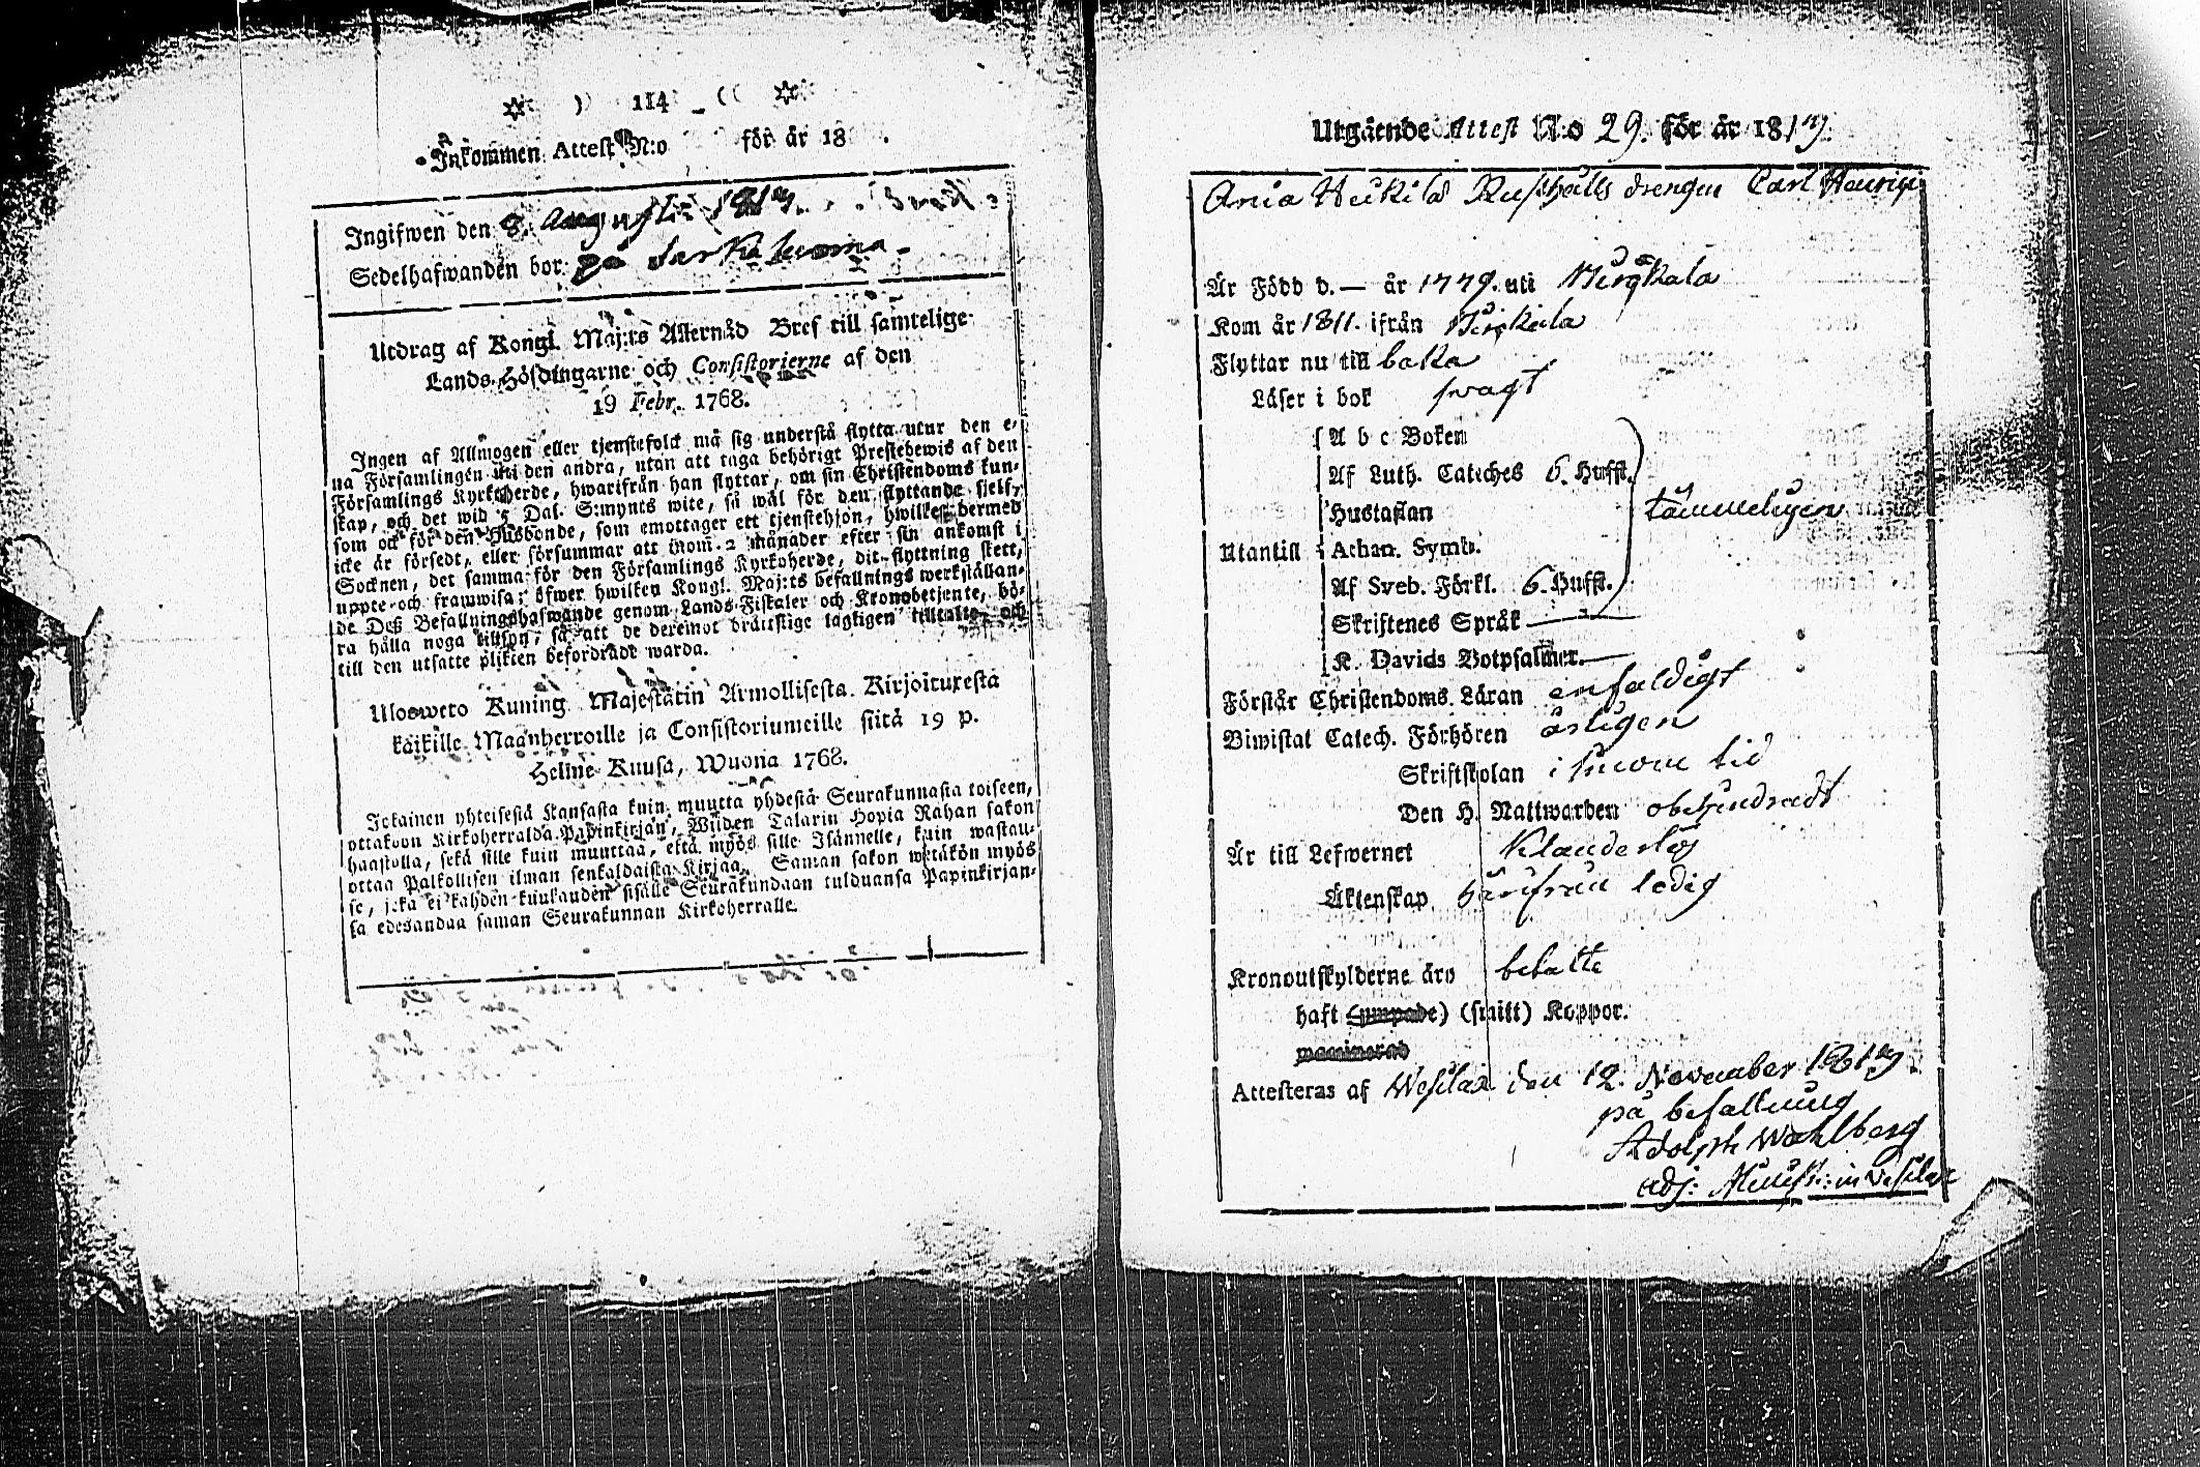 114
Inkommen Attest N:o för år 18
Ingifwen den 8. Augusti 1817.
Sedelhafwanden bor på
Utdrag af Kongl. Maj:ts Allernåd Bref till samtelige
Lands-Höfdingarne och Consistorierne af den
19 Febr. 1768.
Ingen af Allmogen eller tjenstefolck må sig understå flytta utur den e-
na Församlingen uti den andra, utan att taga behörigt Prestebewis af den
Församlings Kyrkoherde, hwarifrån han flyttar, om sin Christendoms kun-
skap, och det wid 5 Dal. S:mynts wite, så wäl för den flyttande sjelf,
som ock för den Husbonde, som emottager ett tjenstehjon, hwilket dermed
icke är försedt, eller försummar att inom 2 månader efter sin ankomst i
Socknen, det samma för den Församlings Kyrkoherde, dit flyttning skett,
uppte och framwisa; öfwer hwilken Kongl. Maj:ts befallnings werkställan-
de Deß Befallningshafwande genom Lands-Fiskaler och Kronobetjente, bö-
ra hålla noga tillsyn, så att de deremot bråttslige lagligen tilltalte och
till den utsatte plikten befordrade warda.
Ulosweto Kuning. Majestätin Armollisesta Kirjoituxesta
kaikille Maanherroille ja Consistoriumeille siitä 19 p.
Helme Kuusa, Wuona 1768.
Jokainen yhteisestä Kansasta kuin muutta yhdestä Seurakunnasta toiseen,
ottakoon Kirkoherralda Papinkirjan, Wijden Talarin Hopia Rahan sakon
haastolla, sekä sille kuin muuttaa, että myös sille Isännelle, kuin wastan-
ottaa Palkollisen ilman senkaldaista Kirjaa. Saman sakon wetäkön myös
se, joka ei kahden kuukauden sisälle Seurakundaan tulduansa Papinkirjan-
sa edesandaa saman Seurakunnan Kirkoherralle.
Utgående Attest N:o 29. för år 1817.
Heikilä Rusthålls drengen Carl
Är Född d. — år 1779. uti
Kom år 1811. ifrån
Flyttar nu till baka
Läser i bok swagt
A b c Boken
Af Luth. Cateches 6. Hufst.
Hustaflan
Utantill Athan. Symb.
Af Sveb. Förkl. 6. Hufst.
Skriftenes Språk —
K. Davids Botpsalmer. —
Förstår Christendoms Läran enfaldigt
Biwistat Catech. Förhören årligen
Skriftskolan i sinom tid
Den H. Nattwarden obehindradt
Är till Lefwernet Klanderlös
Äktenskap härifrån ledig
Kronoutskylderne äro betalte
haft (ympade) (smitt) Koppor.
waccinerad
Attesteras af Wesilax den 12. November 1817.
på befallning
Adolph Wahlberg
adj: Minist: in Wesilax